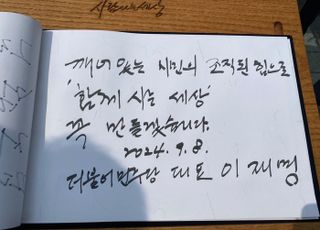 사람사는세상
깨어있는 시민의 조직된 힘으로
'함께 사는 세상'
꼭 만들겠습니다.
2024. 9. 8.
더불어민주당 대표 이재명